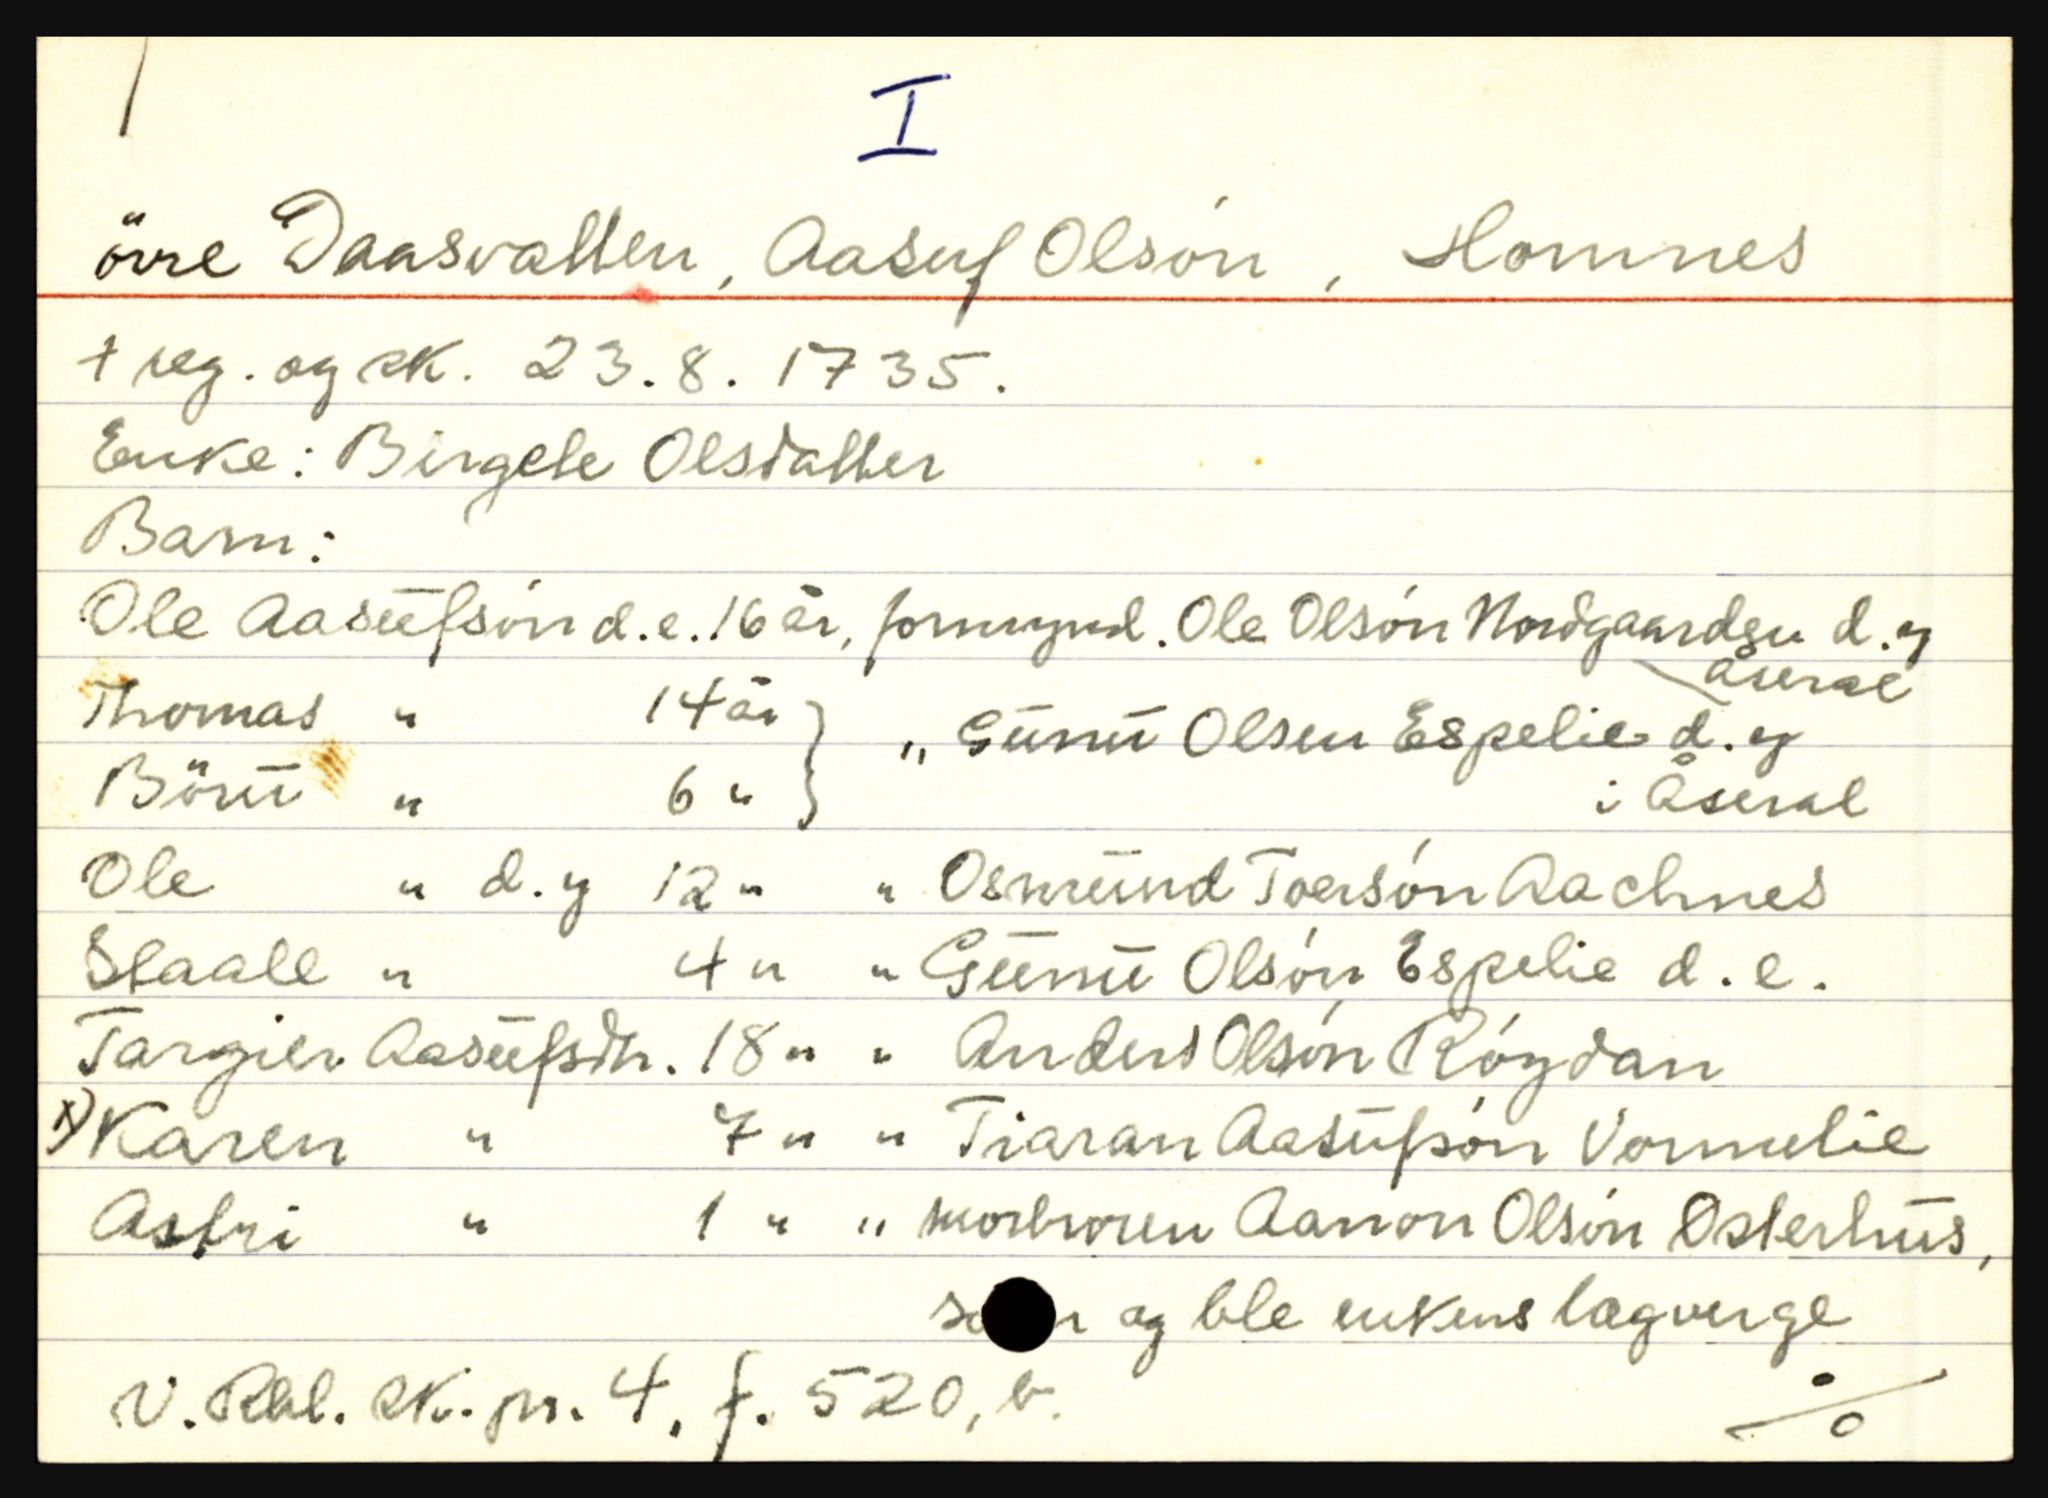 I
övre Daasvatten, Aasuf Olsón, Homnes
+ reg. og sk. 23.8.1735.
Enke: Birgete Olsdatter
Barn:
Ole Aasūfsón d.e. 16 år, formynd. Ole Olsón Nordgaarden d.y
Åseral
Thomas " 14 år } " Gūnū Olsen Espelie d.y
Börū " 6 " } i Åseral
Ole " d.y 12 " " Osmūnd Toersón Aachnes
Staale " 4 " " Gūnū Olsón Espelie d.e.
Targier Aasūfsdtr. 18 " " Anders Olsón Róysdan
x) Karen " 7 " " Tiaran Aasūfsón Vormelie
Astri " 1 " " morbroren Aanon Olsón Osterhūs,
som og ble enkens lagverge
V. Rbl. sk. pr. 4, f. 520, b.
%